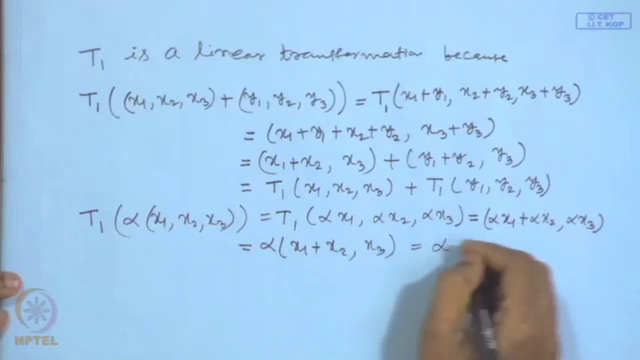 © CET
I.I.T. KGP
T₁ is a linear transformation because
T₁((x₁, x₂, x₃) + (y₁, y₂, y₃)) = T₁(x₁+y₁, x₂+y₂, x₃+y₃)
= (x₁+y₁+x₂+y₂, x₃+y₃)
= (x₁+x₂, x₃) + (y₁+y₂, y₃)
= T₁(x₁, x₂, x₃) + T₁(y₁, y₂, y₃)
T₁(α(x₁, x₂, x₃)) = T₁(αx₁, αx₂, αx₃) = (αx₁+αx₂, αx₃)
= α(x₁+x₂, x₃) = α
NPTEL